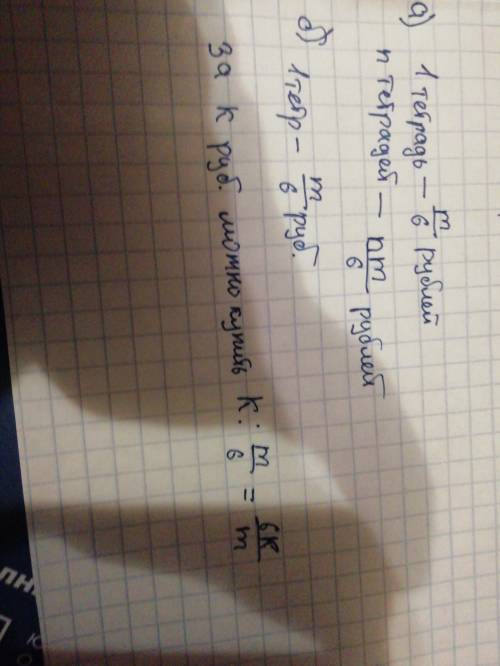 а) 1 тетрадь — m/6 рублей
n тетрадей — nm/6 рублей
б) 1 тетр — m/6 руб.
за к руб. можно купить к : m/6 = 6к/m